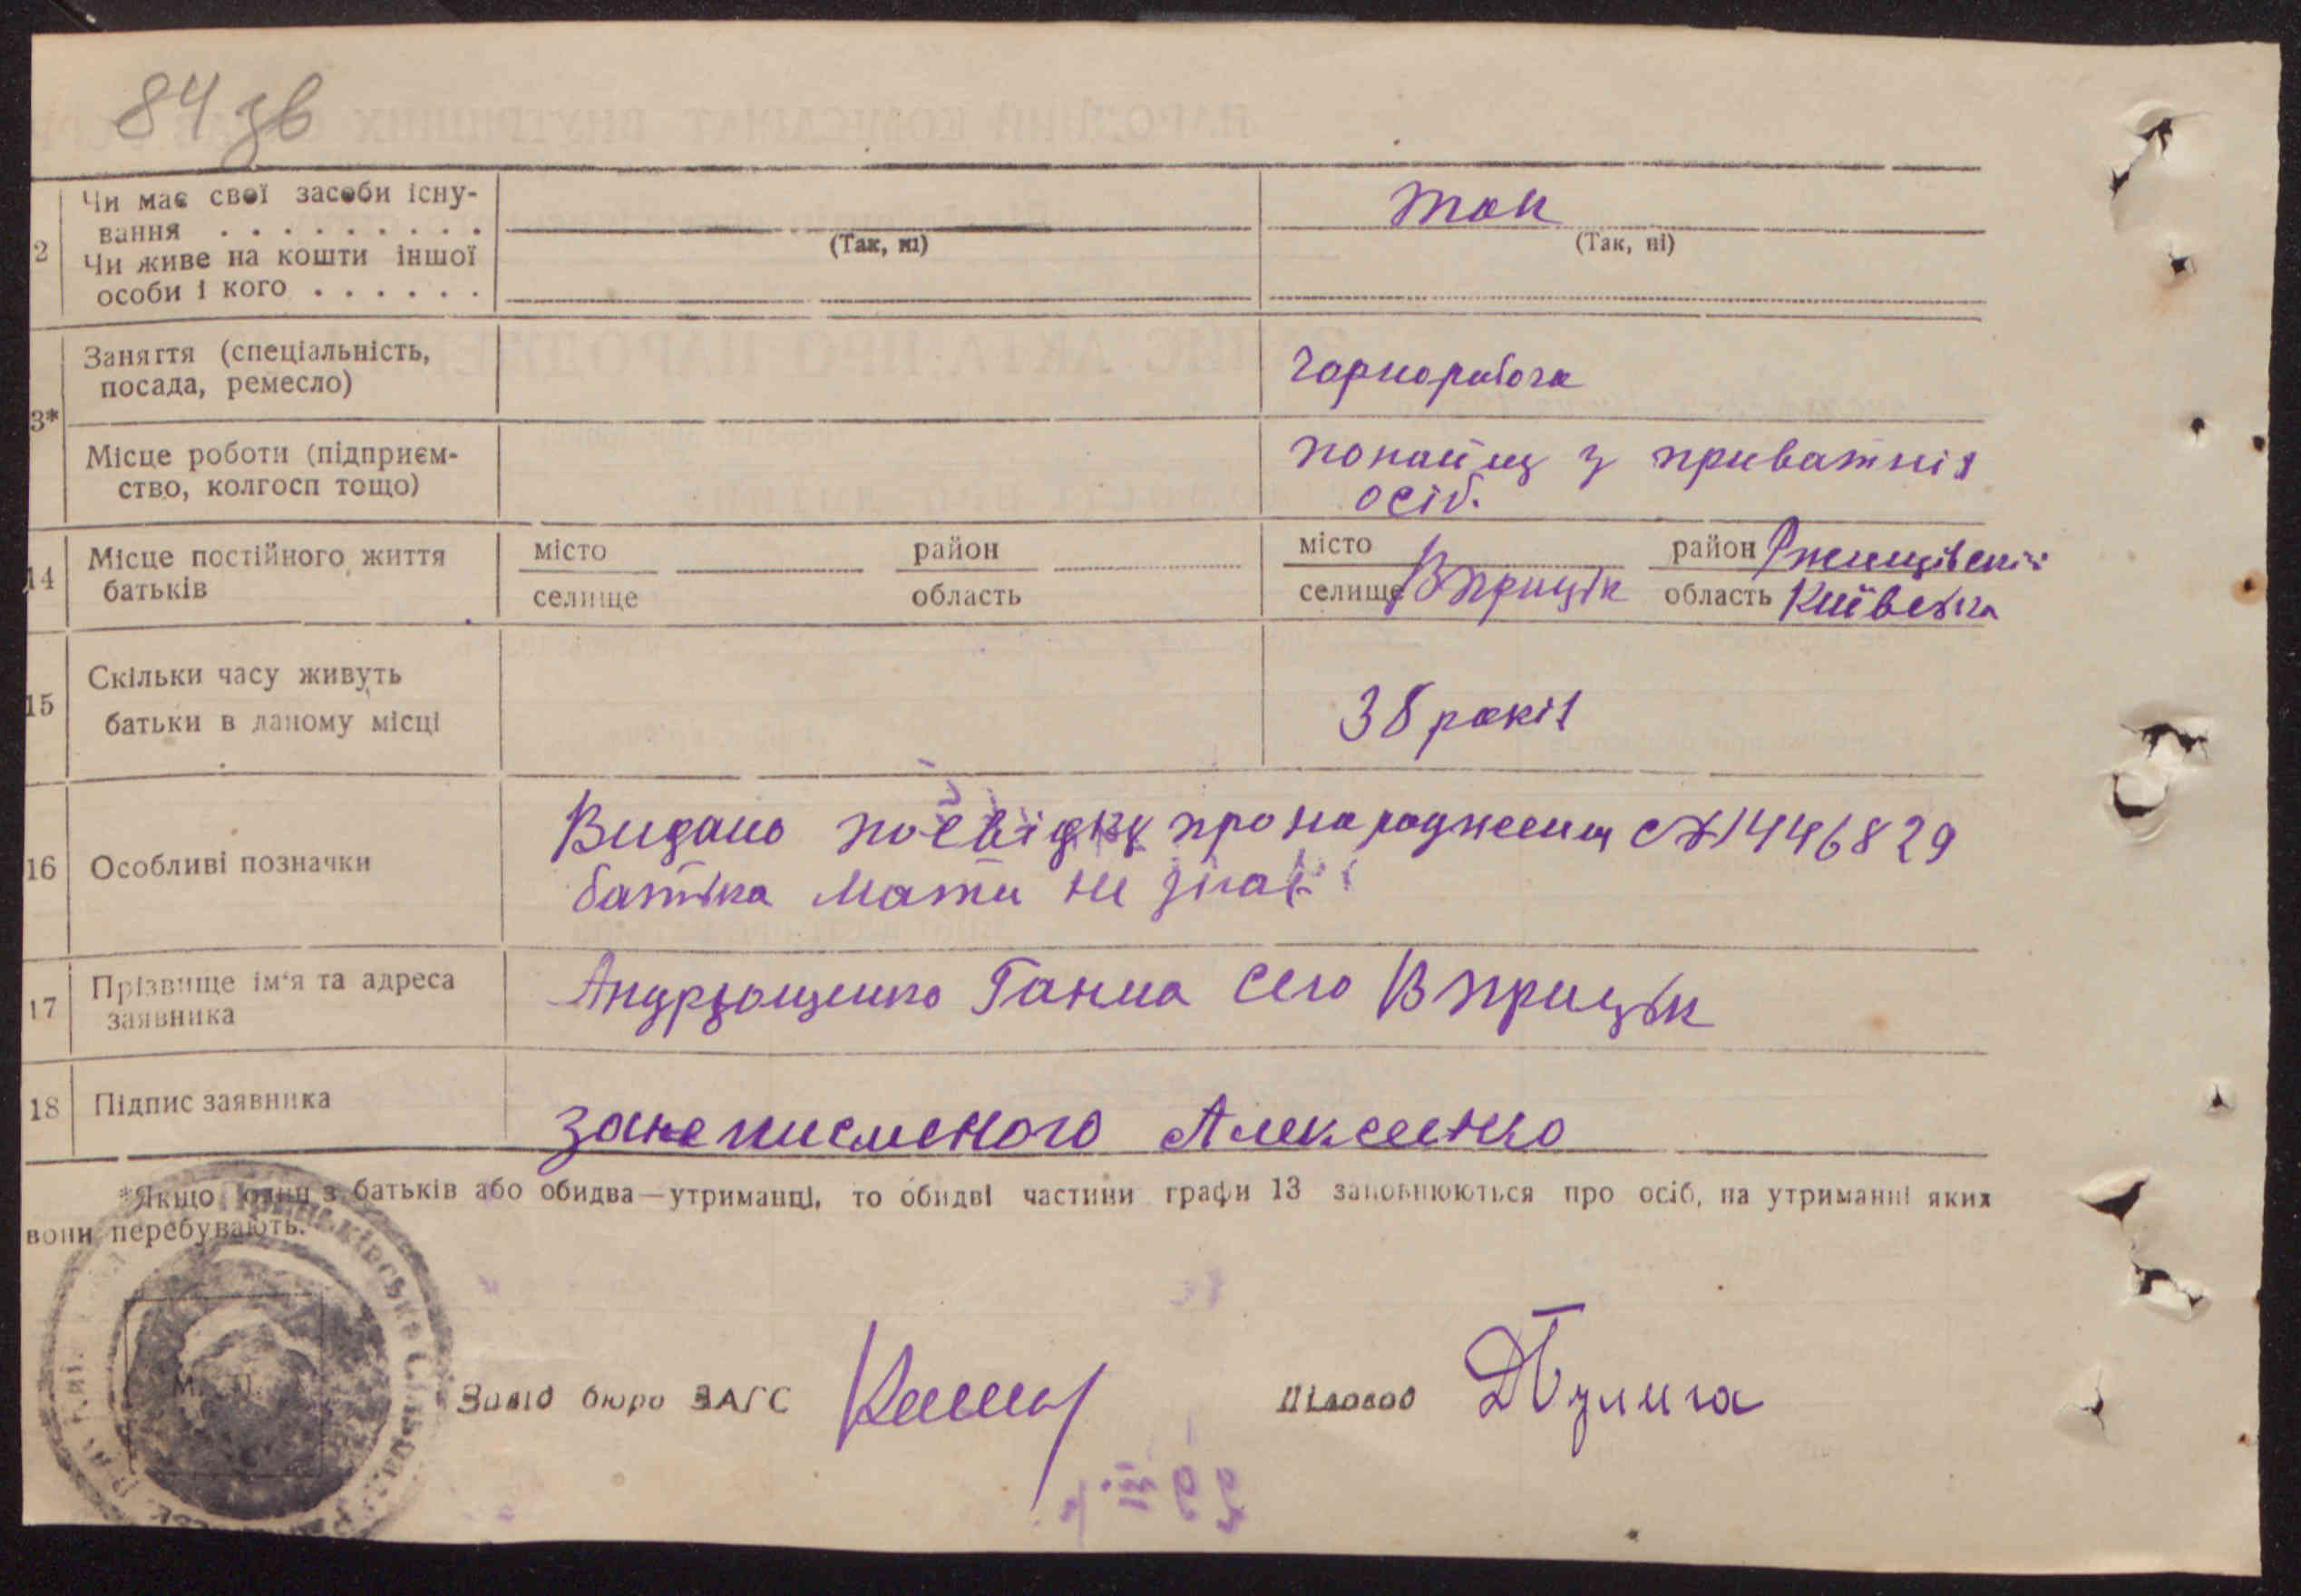 84 зв
2 Чи має свої засоби існу-
вання . . . . . . . . . Так
(Так, ні) (Так, ні)
Чи живе на кошти іншої
особи і кого . . . . . .
3* Заняття (спеціальність,
посада, ремесло) Чорноробоча
Місце роботи (підприєм-
ство, колгосп тощо) понайму у приватних
осіб.
14 Місце постійного життя
батьків
місто район місто район Ржищівський
селище область селище область Київська
15 Скільки часу живуть
батьки в даному місці 38 років
16 Особливі позначки
Видано посвідку про народження № 1446829
батька мати не знає
17 Прізвище ім'я та адреса
заявника
Андрющенко Ганна село
18 Підпис заявника
за неписьменого Алексеенко
*Якщо один з батьків або обидва—утриманці, то обидві частини графи 13 заповнюються про осіб, на утриманні яких
вони перебувають.
М. П.
Завід бюро ЗАГС Діловод